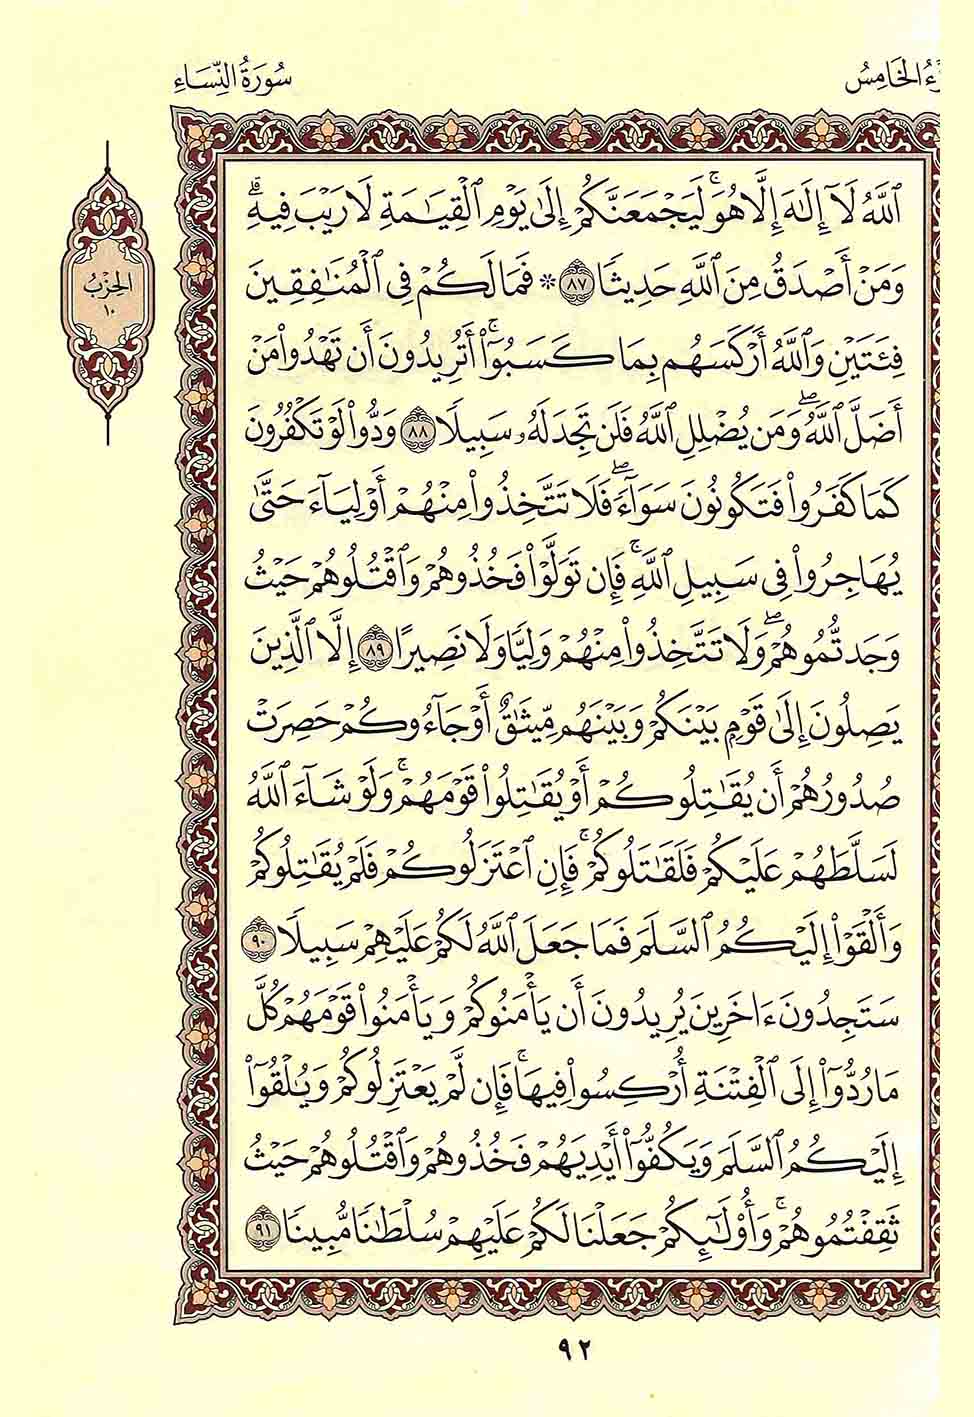 ـزْءُ الخَامِسُ
سُورَةُ النِّسَاءِ
ٱللَّهُ لَآ إِلَٰهَ إِلَّا هُوَۚ لَيَجْمَعَنَّكُمْ إِلَىٰ يَوْمِ ٱلْقِيَٰمَةِ لَا رَيْبَ فِيهِۗ
وَمَنْ أَصْدَقُ مِنَ ٱللَّهِ حَدِيثًا ٨٧ * فَمَا لَكُمْ فِى ٱلْمُنَٰفِقِينَ
فِئَتَيْنِ وَٱللَّهُ أَرْكَسَهُم بِمَا كَسَبُوٓا۟ۚ أَتُرِيدُونَ أَن تَهْدُوا۟ مَنْ
أَضَلَّ ٱللَّهُۖ وَمَن يُضْلِلِ ٱللَّهُ فَلَن تَجِدَ لَهُۥ سَبِيلًا ٨٨ وَدُّوا۟ لَوْ تَكْفُرُونَ
كَمَا كَفَرُوا۟ فَتَكُونُونَ سَوَآءًۖ فَلَا تَتَّخِذُوا۟ مِنْهُمْ أَوْلِيَآءَ حَتَّىٰ
يُهَاجِرُوا۟ فِى سَبِيلِ ٱللَّهِۚ فَإِن تَوَلَّوْا۟ فَخُذُوهُمْ وَٱقْتُلُوهُمْ حَيْثُ
وَجَدتُّمُوهُمْۖ وَلَا تَتَّخِذُوا۟ مِنْهُمْ وَلِيًّا وَلَا نَصِيرًا ٨٩ إِلَّا ٱلَّذِينَ
يَصِلُونَ إِلَىٰ قَوْمٍۭ بَيْنَكُمْ وَبَيْنَهُم مِّيثَٰقٌ أَوْ جَآءُوكُمْ حَصِرَتْ
صُدُورُهُمْ أَن يُقَٰتِلُوكُمْ أَوْ يُقَٰتِلُوا۟ قَوْمَهُمْۚ وَلَوْ شَآءَ ٱللَّهُ
لَسَلَّطَهُمْ عَلَيْكُمْ فَلَقَٰتَلُوكُمْۚ فَإِنِ ٱعْتَزَلُوكُمْ فَلَمْ يُقَٰتِلُوكُمْ
وَأَلْقَوْا۟ إِلَيْكُمُ ٱلسَّلَمَ فَمَا جَعَلَ ٱللَّهُ لَكُمْ عَلَيْهِمْ سَبِيلًا ٩٠
سَتَجِدُونَ ءَاخَرِينَ يُرِيدُونَ أَن يَأْمَنُوكُمْ وَيَأْمَنُوا۟ قَوْمَهُمْ كُلَّ
مَا رُدُّوٓا۟ إِلَى ٱلْفِتْنَةِ أُرْكِسُوا۟ فِيهَاۚ فَإِن لَّمْ يَعْتَزِلُوكُمْ وَيُلْقُوٓا۟
إِلَيْكُمُ ٱلسَّلَمَ وَيَكُفُّوٓا۟ أَيْدِيَهُمْ فَخُذُوهُمْ وَٱقْتُلُوهُمْ حَيْثُ
ثَقِفْتُمُوهُمْۚ وَأُو۟لَٰٓئِكُمْ جَعَلْنَا لَكُمْ عَلَيْهِمْ سُلْطَٰنًا مُّبِينًا ٩١
الحِزْبُ
١٠
٩٢